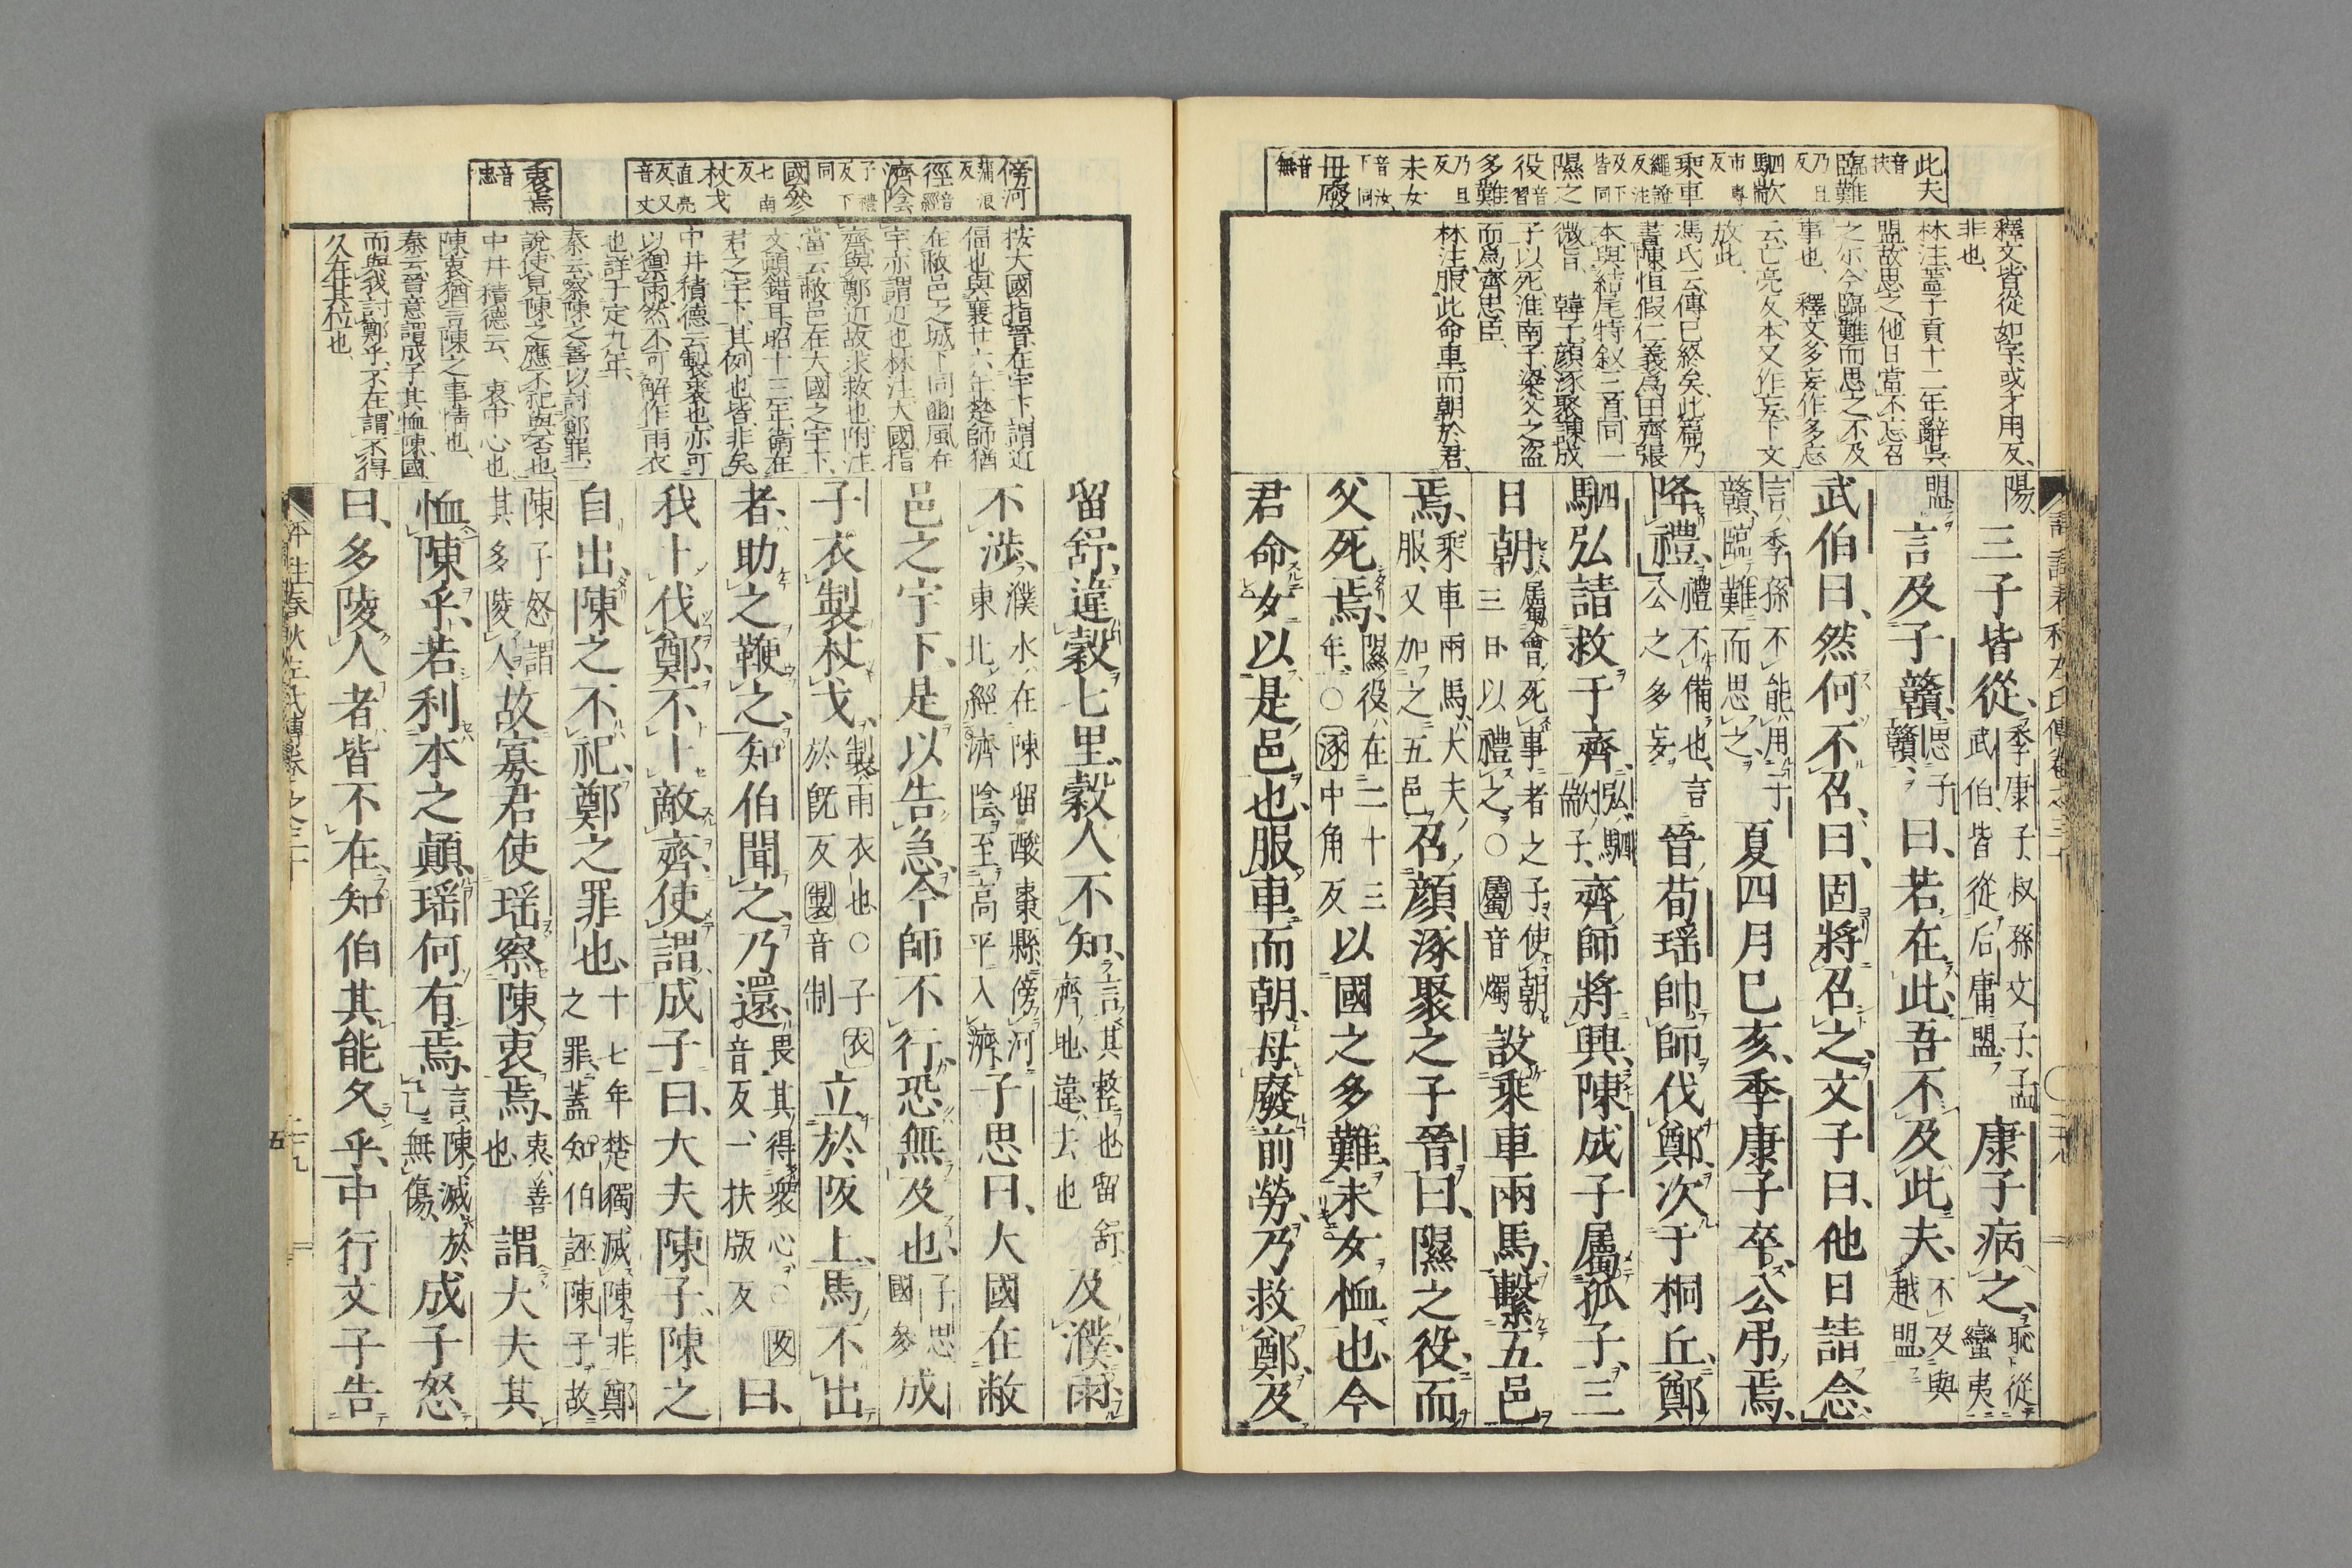 此夫
音扶
臨難
乃旦反
駟歂
四音 市專反
乘車
繩證反注及下皆同
隰之
役
音習
多難
乃旦反
未女
音汝下同
毋廢
音無
釋文皆從如字或才用反
非也
林注蓋子貢十二年辭吳
盟故思之他日當不忘召
之尓今臨難而思之不及
事也 釋文多妄作多忘
云亡亮反本又作妄下文
放此
馮氏云傳已終矣此篇乃
著陳恒假仁義爲田齊張
本與結尾特叙三晉同一
微旨 韓子顔涿聚諫成
子以死淮南子梁父之盜
而爲齊忠臣
林注服此命車而朝於君
陽
三子皆從季康子叔孫文子孟武伯皆從后庸盟康子病之恥從蠻夷
盟言及子贛思子贛曰若在此吾不及此夫不及與越盟
武伯曰然何不召曰固將召之文子曰他日請念
言季孫不能用子贛臨難而思之夏四月巳亥季康子卒公弔焉
降禮禮不備也言公之多妄晉荀瑤帥師伐鄭次于桐丘鄭
駟弘請救于齊弘駟歂子齊師將興陳成子屬孤子三
日朝屬會死事者之子使朝三日以禮之○屬音燭設乘車兩馬繫五邑
焉乘車兩馬大夫服又加之五邑召顔涿聚之子晉曰隰之役而
父死焉隰役在二十三年○涿中角反以國之多難未女恤也今
君命女以是邑也服車而朝毋廢前勞乃救鄭及
傍河
蒲浪反
徑
音經
濟陰
子禮反下同
國參
七南反
杖戈
直亮反又音丈
衷焉
音忠
按大國指晉在宇下謂近
偪也與襄廿六年楚師猶
在敝邑之城下同豳風在
宇亦謂近也林注大國指
齊與鄭近故求救也附注
當云敝邑在大國之宇下
文顛錯耳昭十三年衛在
君之宇下其例也皆非矣
中井積德云製裘也亦可
以禦雨然不可解作雨衣
也詳于定九年
秦云察陳之善以討鄭罪
說使見陳之應不祀與否也
中井積德云 衷中心也
陳衷猶言陳之事情也
秦云晉意謂成子其恤陳國
而與我討鄭乎不在謂不得
久在其位也
留舒違穀七里穀人不知言其整也留舒齊地違去也及濮雨
不涉濮水在陳留酸棗縣傍河東北經濟陰至高平入濟子思曰大國在敝
邑之宇下是以告急今師不行恐無及也子思國參成
子衣製杖戈製雨衣也○子衣於旣反製音制立於阪上馬不出
者助之鞭之知伯聞之乃還畏其得衆心○阪音反一扶版反曰
我卜伐鄭不卜敵齊使謂成子曰大夫陳子陳之
自出陳之不祀鄭之罪也十七年楚獨滅陳非鄭之罪蓋知伯誣陳子故
陳子怒謂其多陵人故寡君使瑤察陳衷焉衷善也謂大夫其
恤陳乎若利本之顚瑤何有焉言陳滅於己無傷成子怒
曰多陵人者皆不在知伯其能久乎中行文子告
五